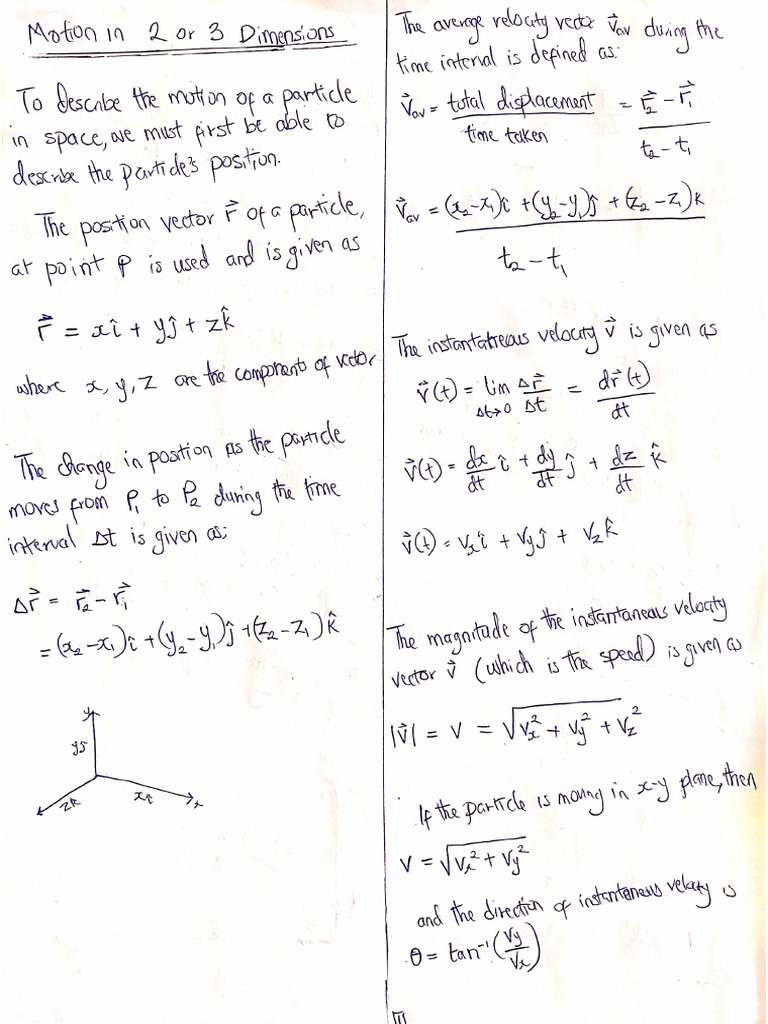 Motion in 2 or 3 Dimensions
To describe the motion of a particle
in space, we must first be able to
describe the particle's position.
The position vector r⃗ of a particle,
at point P is used and is given as
r⃗ = xî + yĵ + zk̂
where x, y, z are the component of vector
The change in position as the particle
moves from P₁ to P₂ during the time
interval Δt is given as;
Δr⃗ = r⃗₂ - r⃗₁
= (x₂-x₁)î + (y₂-y₁)ĵ + (z₂-z₁)k̂
y
yĵ
zk
xî
x
The average velocity vector v⃗av during the
time interval is defined as:
v⃗av = total displacement / time taken = (r⃗₂ - r⃗₁) / (t₂ - t₁)
v⃗av = ((x₂-x₁)î + (y₂-y₁)ĵ + (z₂-z₁)k) / (t₂ - t₁)
The instantatneous velocity v⃗ is given as
v⃗(t) = lim Δt→0 Δr⃗/Δt = dr⃗(t)/dt
v⃗(t) = dx/dt î + dy/dt ĵ + dz/dt k̂
v⃗(t) = vₓî + vyĵ + vzk̂
The magnitude of the instantaneous velocity
vector v⃗ (which is the speed) is given as
|v⃗| = v = √(vₓ² + vy² + vz²)
If the particle is moving in x-y plane, then
v = √(vₓ² + vy²)
and the direction of instantaneous velocity is
θ = tan⁻¹(vy/vₓ)